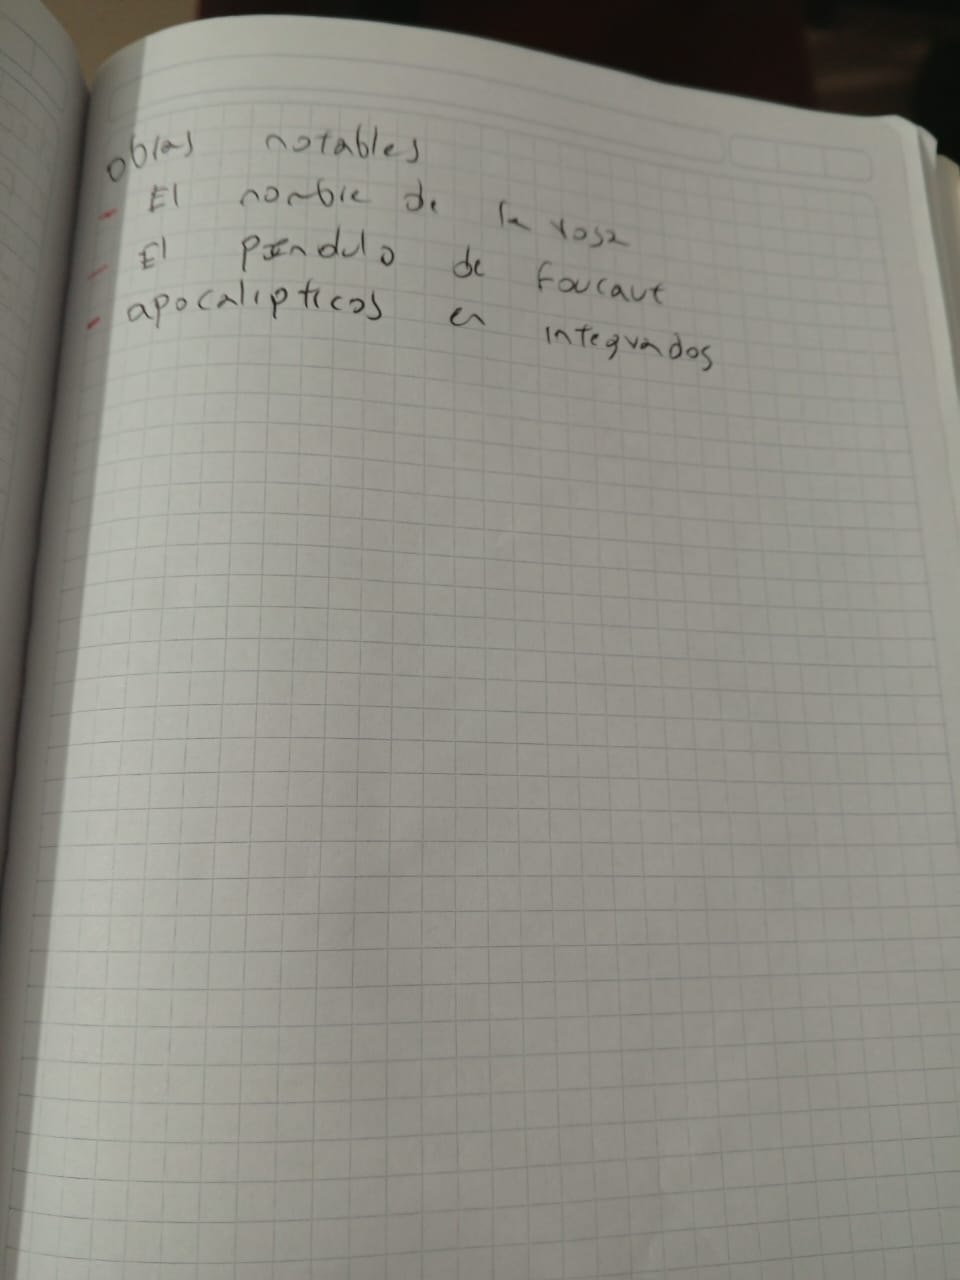 Obras notables
- El nombre de la rosa
- El péndulo de Foucaut
- apocalipticos en integrados